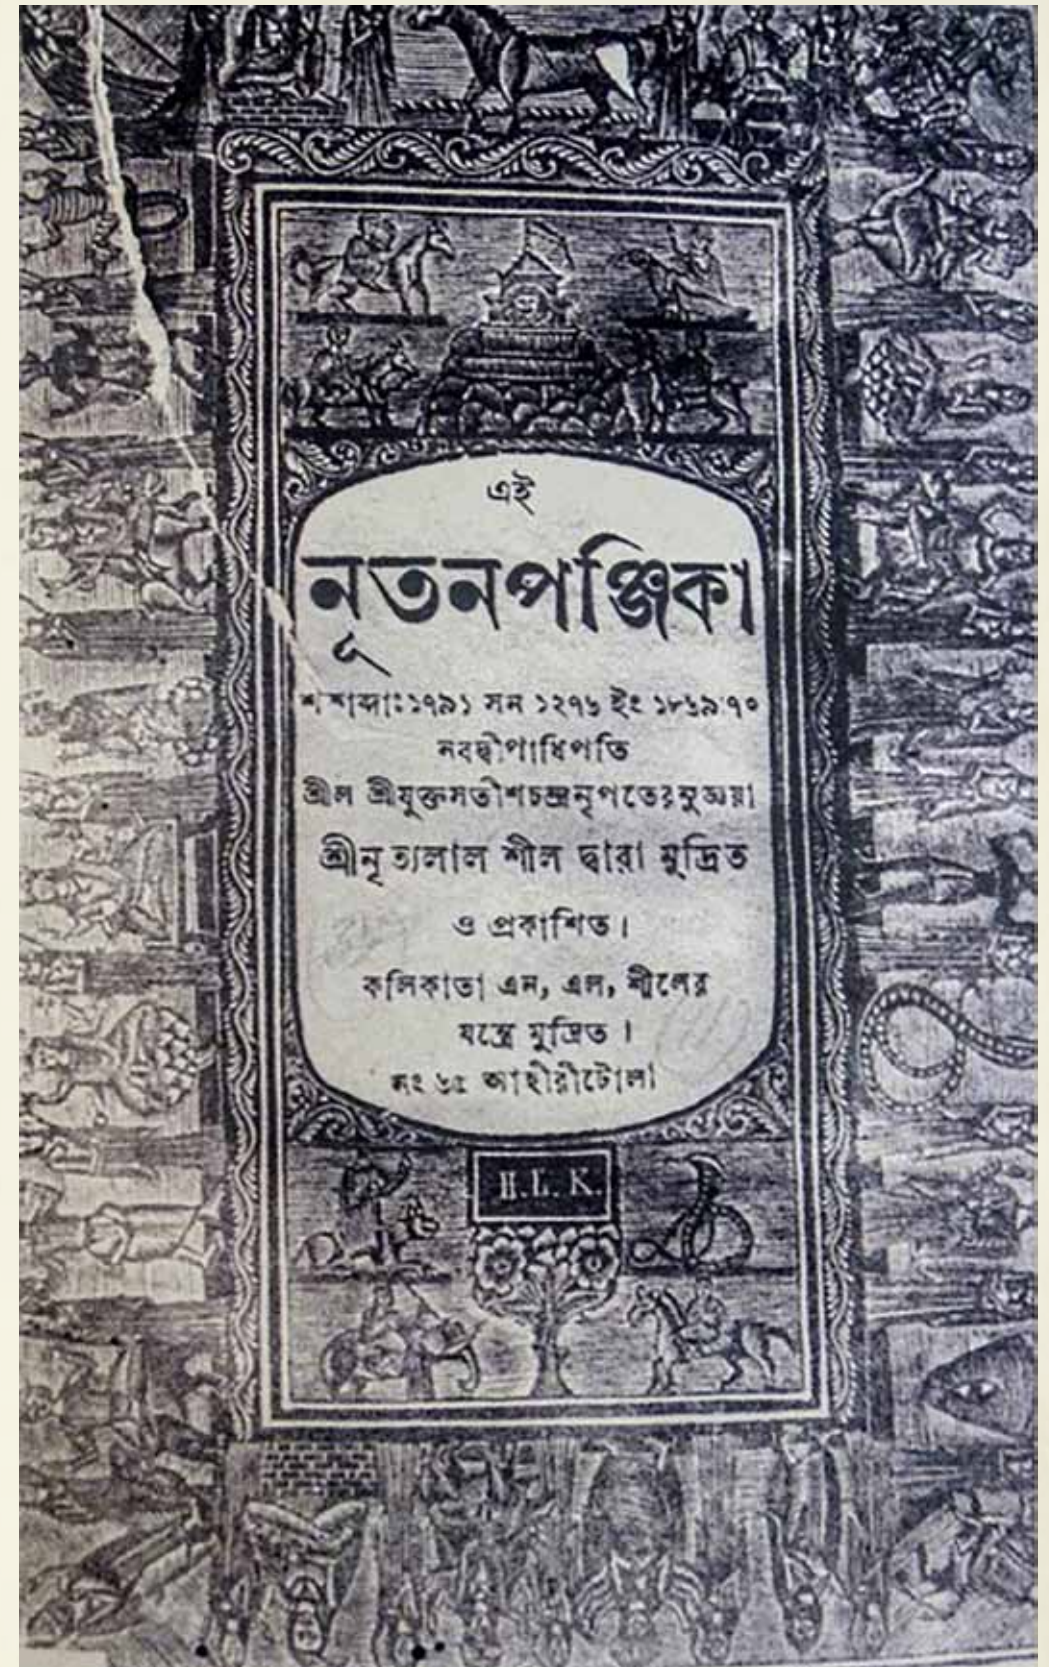 এই
নূতনপঞ্জিকা
শকাব্দাঃ ১৭৯১ সন ১২৭৬ ইং ১৮৬৯৷৭০
নবদ্বীপাধিপতি
শ্রীল শ্রীযুক্তসতীশচন্দ্রনৃপতেরনুজ্ঞয়া
শ্রীনৃত্যলাল শীল দ্বারা মুদ্রিত
ও প্রকাশিত।
কলিকাতা এন, এল, শীলের
যন্ত্রে মুদ্রিত।
নং ৬৫ আহীরীটোলা
K.